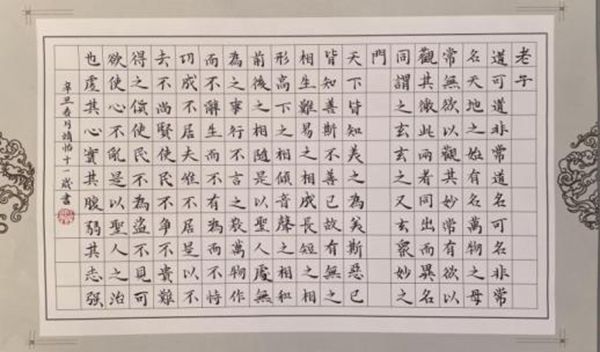 老子
道可道非常道名可名非常
名天地之始有名萬物之母
常無欲以觀其妙常有欲以
觀其徼此兩者同出而異名
同謂之玄玄之又玄眾妙之
門
天下皆知美之為美斯惡已
皆知善斯不善已故有無相
相生難易之相成長短之相
形高下之相傾音聲之相和
前後之相隨是以聖人處無
為之事行不言之教萬物作
而不辭生而不有為而不恃
功成不居夫唯不居是以不
去不尚賢使民不爭不貴難
得之貨使民不為盜不見可
欲使心不亂是以聖人之治
也虛其心實其腹弱其志强
辛丑春月靖怡十一歲書